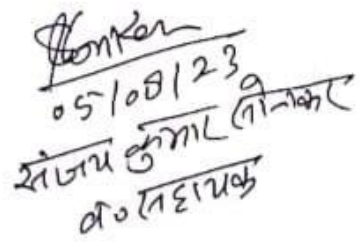 05/08/23
संजय कुमार सोनकर
व० सहायक